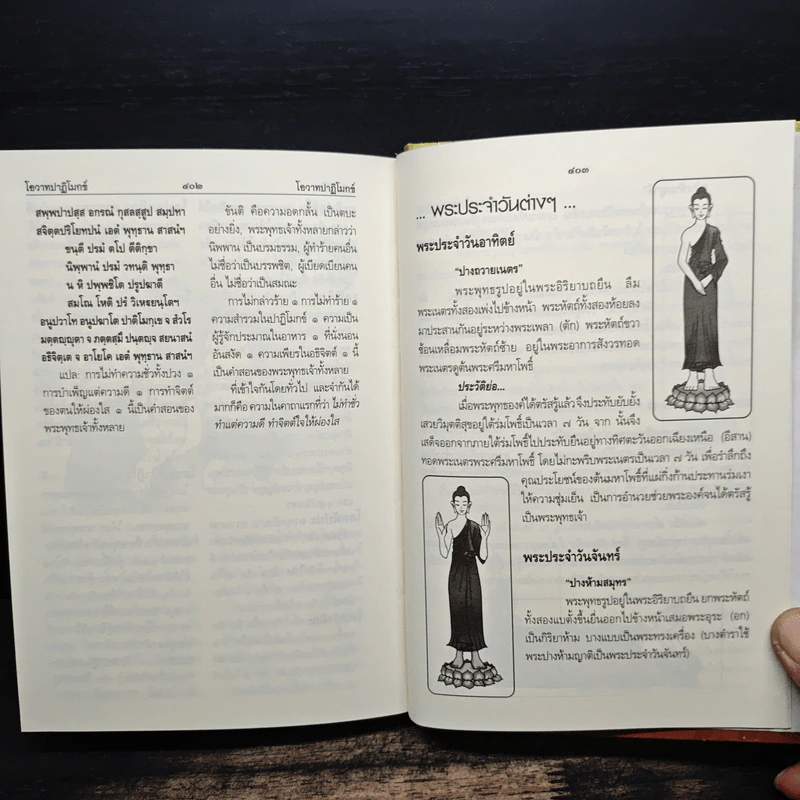 โอวาทปาฏิโมกข์ ๔๐๒ โอวาทปาฏิโมกข์
สพฺพปาปสฺส อกรณํ กุสลสฺสูป สมฺปทา
สจิตฺตปริโยทปนํ เอตํ พุทฺธาน สาสนํฯ
ขนฺตี ปรมํ ตโป ตีติกฺขา
นิพฺพานํ ปรมํ วทนฺติ พุทฺธา
น หิ ปพฺพชิโต ปรูปฆาตี
สมโณ โหติ ปรํ วิเหฐยนฺโตฯ
อนูปวาโท อนูปฆาโต ปาติโมกฺเข จ สํวโร
มตฺตญฺญุตา จ ภตฺตสฺมึ ปนฺตญฺจ สยนาสนํ
อธิจิตฺเต จ อาโยโค เอตํ พุทฺธาน สาสนํฯ
แปล: การไม่ทำความชั่วทั้งปวง ๑
การบำเพ็ญแต่ความดี ๑ การทำจิตต์
ของตนให้ผ่องใส ๑ นี้เป็นคำสอนของ
พระพุทธเจ้าทั้งหลาย
ขันติ คือความอดกลั้น เป็นตบะ
อย่างยิ่ง, พระพุทธเจ้าทั้งหลายกล่าวว่า
นิพพาน เป็นบรมธรรม, ผู้ทำร้ายคนอื่น
ไม่ชื่อว่าเป็นบรรพชิต, ผู้เบียดเบียนคน
อื่น ไม่ชื่อว่าเป็นสมณะ
การไม่กล่าวร้าย ๑ การไม่ทำร้าย ๑
ความสำรวมในปาฏิโมกข์ ๑ ความเป็น
ผู้รู้จักประมาณในอาหาร ๑ ที่นั่งนอน
อันสงัด ๑ ความเพียรในอธิจิตต์ ๑ นี้
เป็นคำสอนของพระพุทธเจ้าทั้งหลาย
ที่เข้าใจกันโดยทั่วไป และจำกันได้
มากก็คือ ความในคาถาแรกที่ว่า ไม่ทำชั่ว
ทำแต่ความดี ทำจิตต์ใจให้ผ่องใส
๔๐๓
... พระประจำวันต่างๆ ...
พระประจำวันอาทิตย์
"ปางถวายเนตร"
พระพุทธรูปอยู่ในพระอิริยาบถยืน ลืม
พระเนตรทั้งสองเพ่งไปข้างหน้า พระหัตถ์ทั้งสองห้อยลง
มาประสานกันอยู่ระหว่างพระเพลา (ตัก) พระหัตถ์ขวา
ซ้อนเหลื่อมพระหัตถ์ซ้าย อยู่ในพระอาการสังวรทอด
พระเนตรดูต้นพระศรีมหาโพธิ์
ประวัติย่อ...
เมื่อพระพุทธองค์ได้ตรัสรู้แล้วจึงประทับยับยั้ง
เสวยวิมุตติสุขอยู่ใต้ร่มโพธิ์เป็นเวลา ๗ วัน จาก นั้นจึง
เสด็จออกจากภายใต้ร่มโพธิ์ไปประทับยืนอยู่ทางทิศตะวันออกเฉียงเหนือ (อีสาน)
ทอดพระเนตรพระศรีมหาโพธิ์ โดยไม่กะพริบพระเนตรเป็นเวลา ๗ วัน เพื่อรำลึกถึง
คุณประโยชน์ของต้นมหาโพธิ์ที่แผ่กิ่งก้านประทานร่มเงา
ให้ความชุ่มเย็น เป็นการอำนวยช่วยพระองค์จนได้ตรัสรู้
เป็นพระพุทธเจ้า
พระประจำวันจันทร์
"ปางห้ามสมุทร"
พระพุทธรูปอยู่ในพระอิริยาบถยืน ยกพระหัตถ์
ทั้งสองแบตั้งขึ้นยื่นออกไปข้างหน้าเสมอพระอุระ (อก)
เป็นกิริยาห้าม บางแบบเป็นพระทรงเครื่อง (บางตำราใช้
พระปางห้ามญาติเป็นพระประจำวันจันทร์)